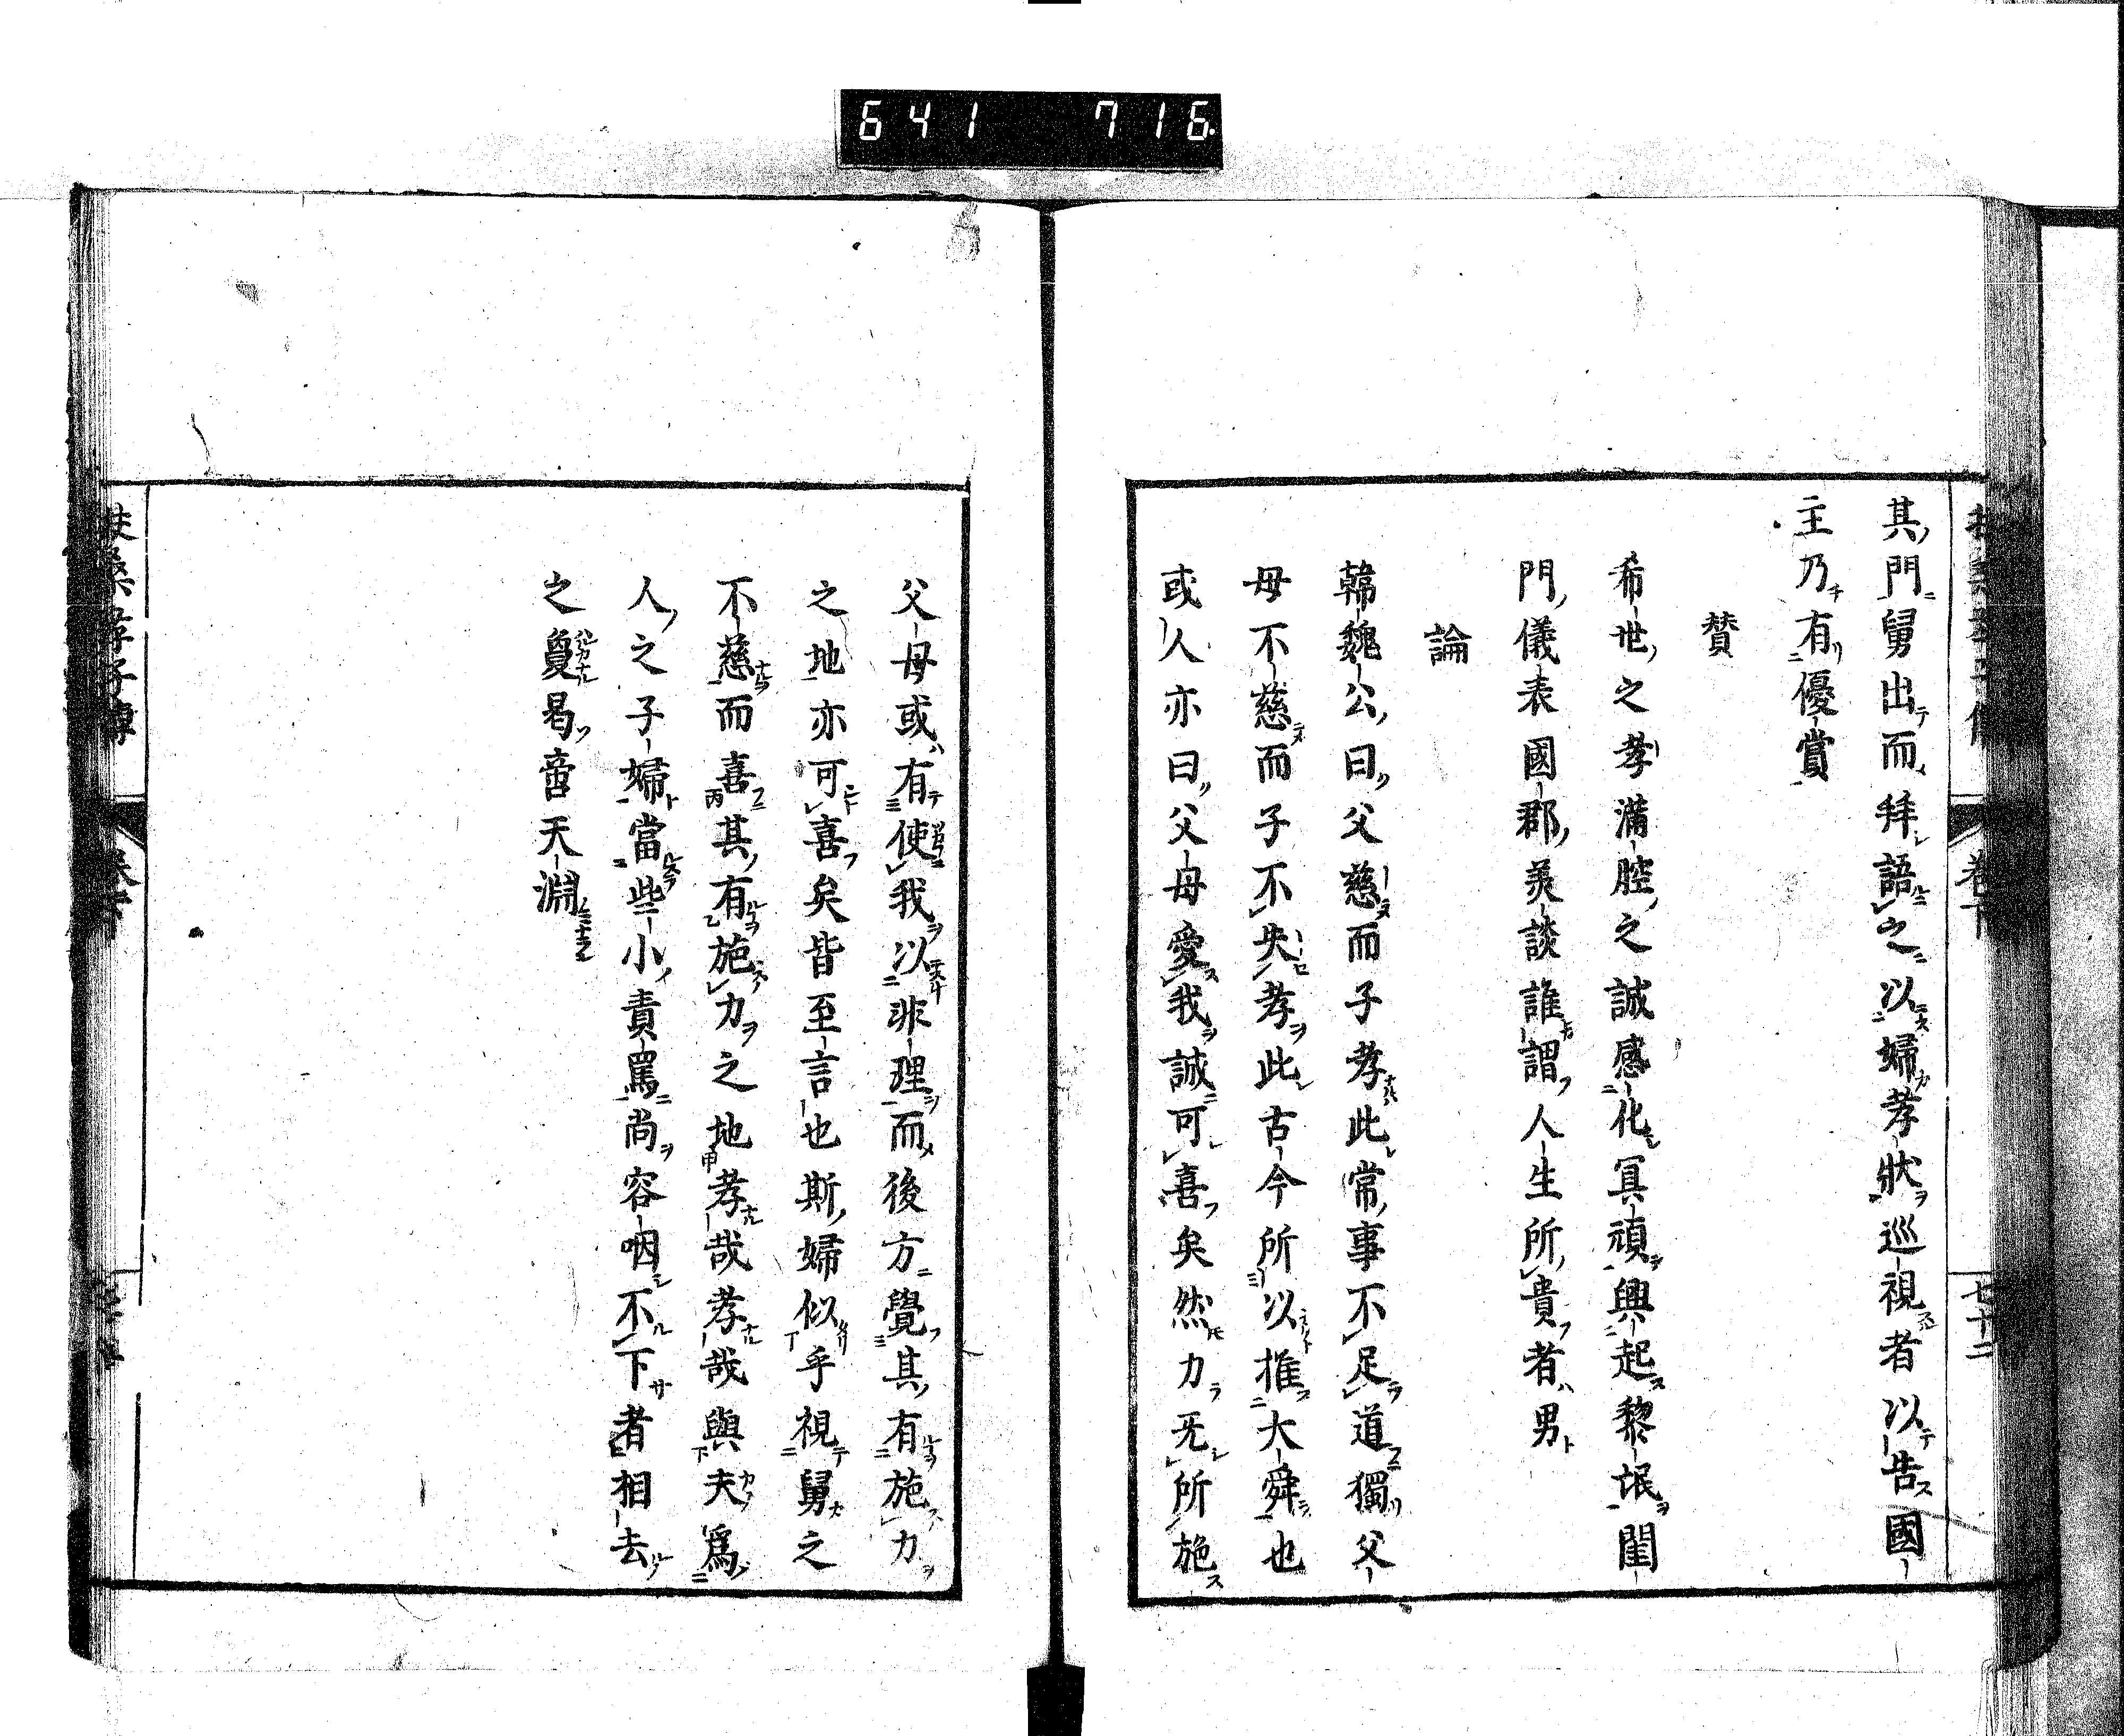 641 716
其門舅出而拜語之以婦孝狀巡視者以告國
主乃有優賞
賛
希世之孝滿腔之誠感化冥頑興起黎氓閨
門儀表國郡羙談誰謂人生所貴者男
論
韓魏公曰父慈而子孝此常事不足道獨父
母不慈而子不失孝此古今所以推大舜也
或人亦曰父母愛我誠可喜矣然力无所施
卷下
七十二
父母或有使我以非理而後方覺其有施力
之地亦可喜矣皆至言也斯婦似乎視舅之
不慈而喜其有施力之地孝哉孝哉與夫爲
人之子婦當些小責罵尚容咽不下者相去
之敻曷啻天淵
扶桑孝子傳